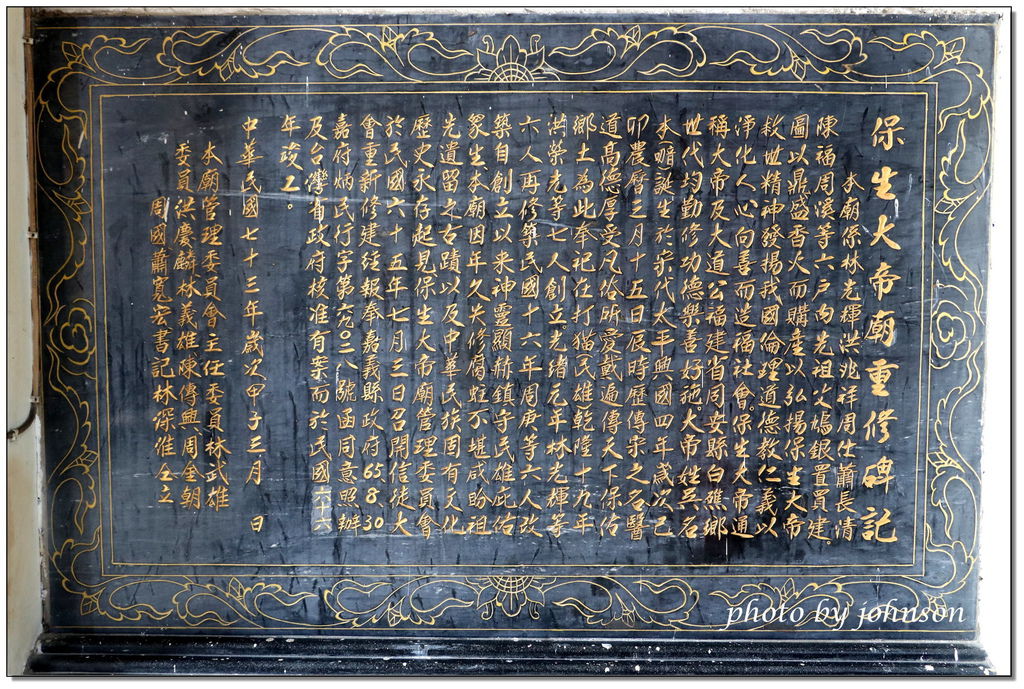 保生大帝廟重修碑記
本廟係林光輝洪兆祥周仕蕭長清
陳福周溪等六戶內先祖父鳩銀置買建
圖以鼎盛香火而購產以弘揚保生大帝
救世精神發揚我國倫理道德教仁義以
淨化人心向善而造福社會。保生大帝通
稱大帝及大道公福建省同安縣白礁鄉
世代均勤修功德樂喜好施大帝姓吳名
本媚誕生於宋代太平興國四年歲次己
卯農曆三月十五日辰時歷傳宋之名醫
道高德厚受凡俗所愛戴遍傳天下保佑
鄉土為此奉祀在打猫(民雄乾隆十九年
洪榮光等七人創立。光緒元年林光輝等
六人再修築民國十六年周庚等六人改
築自創立以來神靈顯赫鎮守民雄庇佑
眾生本廟因年久失修腐蛀不堪咸盼祖
先遺留之古蹟以及中華民族固有文化
歷史永存起見保生大帝廟管理委員會
於民國六十五年七月三日召開信徒大
會重新修建經報奉嘉義縣政府65.8.30
嘉府炳民行字第六九〇二八號函同意照辦
及台灣省政府核准有案而於民國六十六
年竣工。
中華民國七十三年歲次(甲子三月 日
本廟管理委員會主任委員林武雄
委員洪慶麟林義雄陳傳興周金朝
周國蕭寬容書記林深淮仝立
photo by johnson